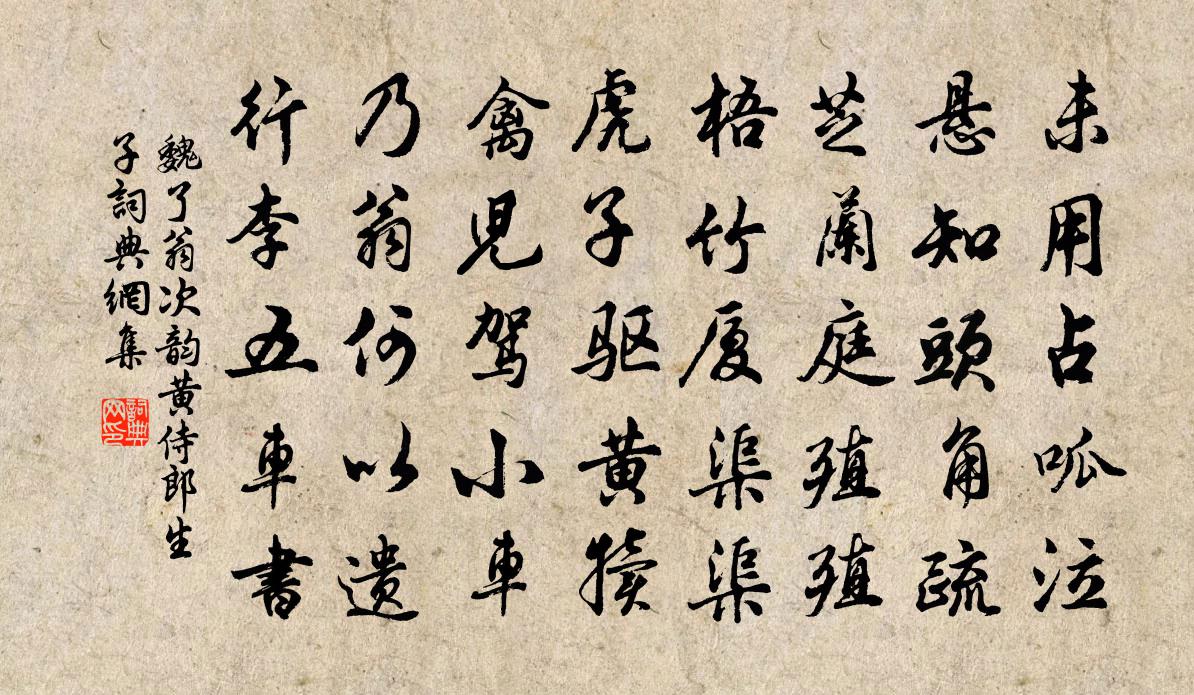 未用占呱泣
悬知頭角疏
芝蘭庭殖殖
梧竹厦渠渠
虎子驱黄犊
禽兒駕小車
乃翁何以遺
行李五車書
魏了翁次韵黄侍郎生
子詞典網集
詞典网印